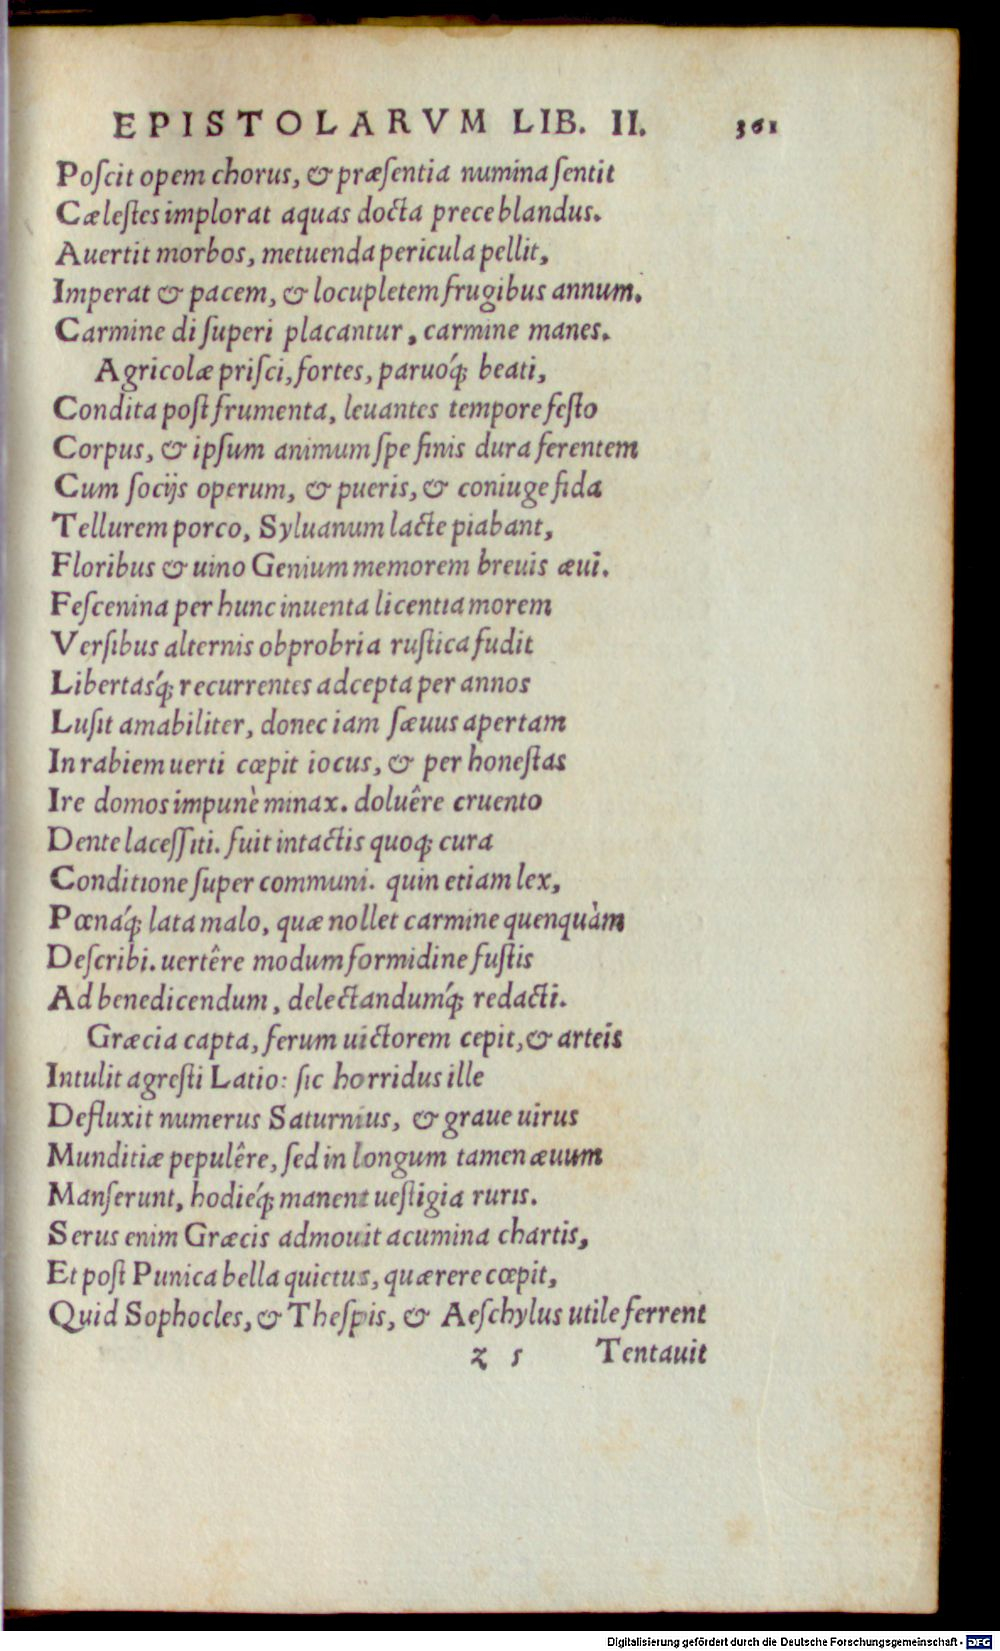 EPISTOLARVM LIB. II. 361
Poſcit opem chorus, & præſentia numina ſentit
Cæleſtes implorat aquas docta prece blandus.
Auertit morbos, metuenda pericula pellit,
Imperat & pacem, & locupletem frugibus annum.
Carmine di ſuperi placantur, carmine manes.
Agricolæ priſci, fortes, paruoq́; beati,
Condita poſt frumenta, leuantes tempore feſto
Corpus, & ipſum animum ſpe finis dura ferentem
Cum ſocijs operum, & pueris, & coniuge fida
Tellurem porco, Syluanum lacte piabant,
Floribus & uino Genium memorem breuis æui.
Feſcenina per hunc inuenta licentia morem
Verſibus alternis obprobria ruſtica fudit
Libertasq́; recurrentes adcepta per annos
Luſit amabiliter, donec iam ſæuus apertam
In rabiem uerti cœpit iocus, & per honeſtas
Ire domos impunè minax. doluêre cruento
Dente laceſſiti. fuit intactis quoq; cura
Conditione ſuper communi. quin etiam lex,
Pœnaq́; lata malo, quæ nollet carmine quenquàm
Deſcribi. uertêre modum formidine fuſtis
Ad benedicendum, delectandumq́; redacti.
Græcia capta, ferum uictorem cepit, & arteis
Intulit agreſti Latio: ſic horridus ille
Defluxit numerus Saturnius, & graue uirus
Munditiæ pepulêre, ſed in longum tamen æuum
Manſerunt, hodieq́; manent ueſtigia ruris.
Serus enim Græcis admouit acumina chartis,
Et poſt Punica bella quietus, quærere cœpit,
Quid Sophocles, & Theſpis, & Aeſchylus utile ferrent
z 5 Tentauit
Digitalisierung gefördert durch die Deutsche Forschungsgemeinschaft - DFG